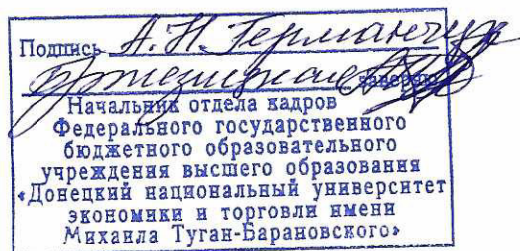 Подпись А.Н. Германчук
заверяю
Начальник отдела кадров
Федерального государственного
бюджетного образовательного
учреждения высшего образования
«Донецкий национальный университет
экономики и торговли имени
Михаила Туган-Барановского»